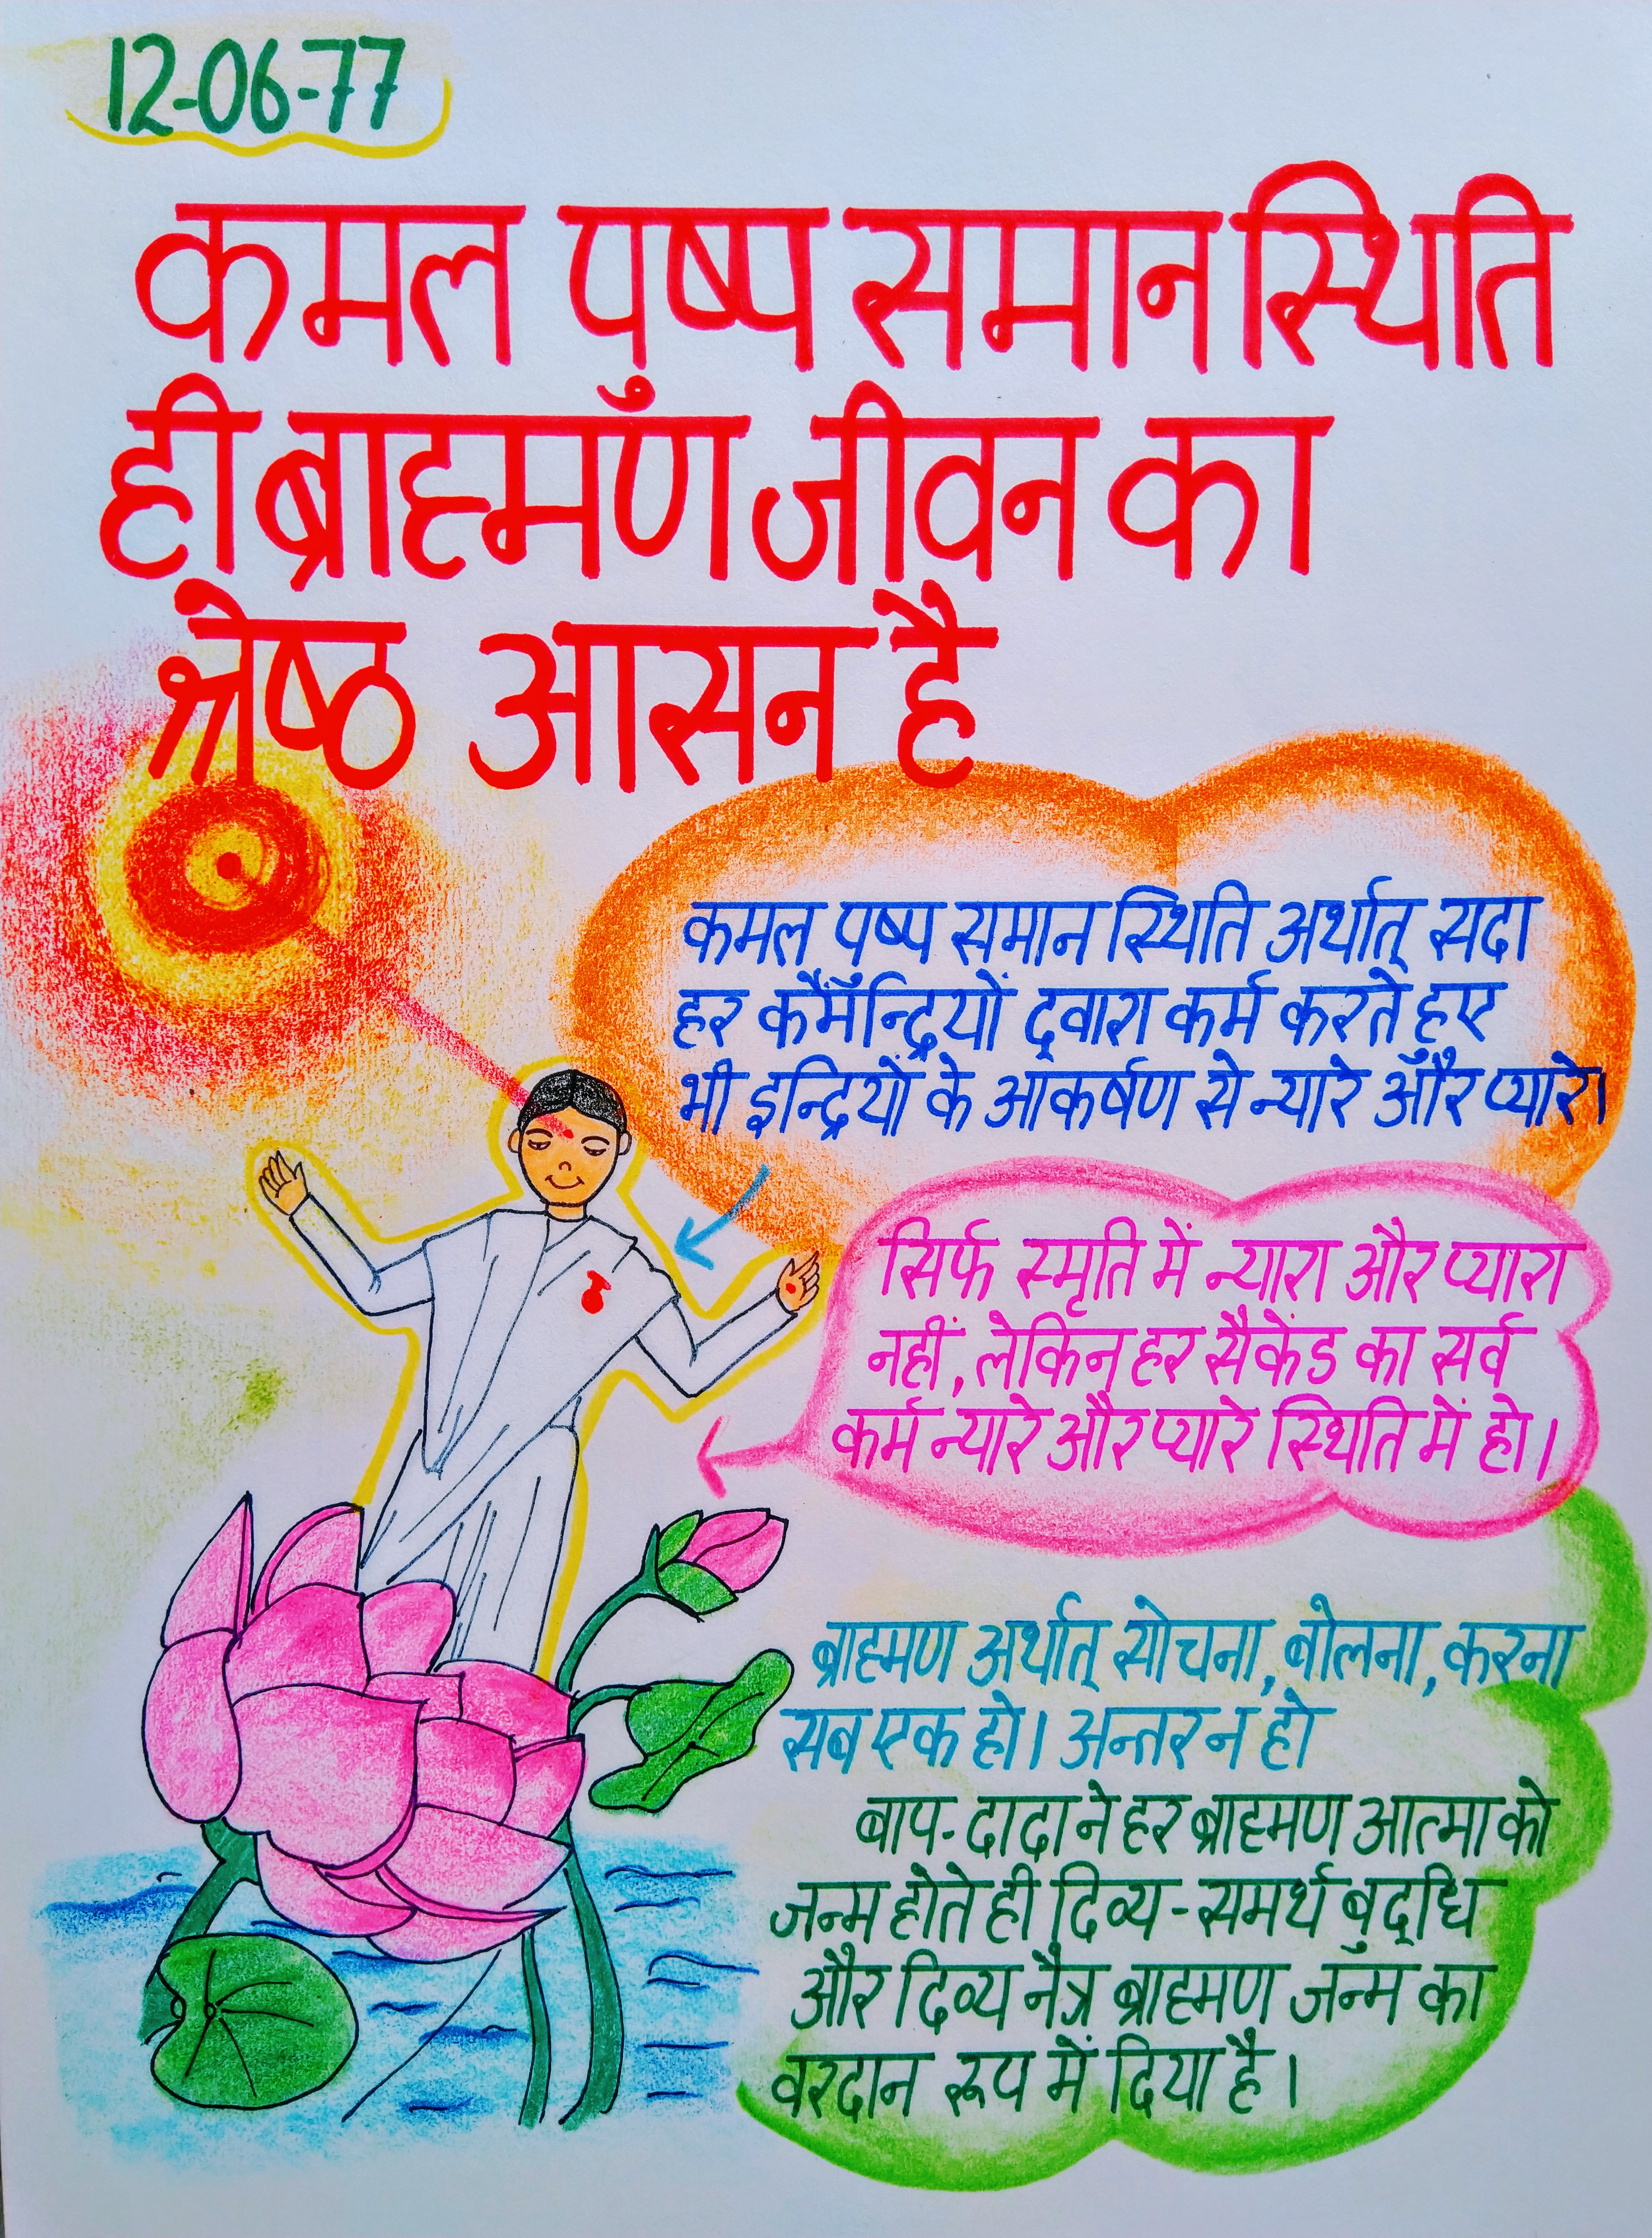 12-06-77
कमल पुष्प समान स्थिति
ही ब्राह्मण जीवन का
श्रेष्ठ आसन है
कमल पुष्प समान स्थिति अर्थात् सदा
हर कर्मेन्द्रियों द्वारा कर्म करते हुए
भी इन्द्रियों के आकर्षण से न्यारे और प्यारे।
सिर्फ स्मृति में न्यारा और प्यारा
नहीं, लेकिन हर सैकेंड का सर्व
कर्म न्यारे और प्यारे स्थिति में हो।
ब्राह्मण अर्थात् सोचना, बोलना, करना
सब एक हो। अन्तर न हो
बाप-दादा ने हर ब्राह्मण आत्मा को
जन्म होते ही दिव्य-समर्थ बुद्धि
और दिव्य नैत्र ब्राह्मण जन्म का
वरदान रूप में दिया है।